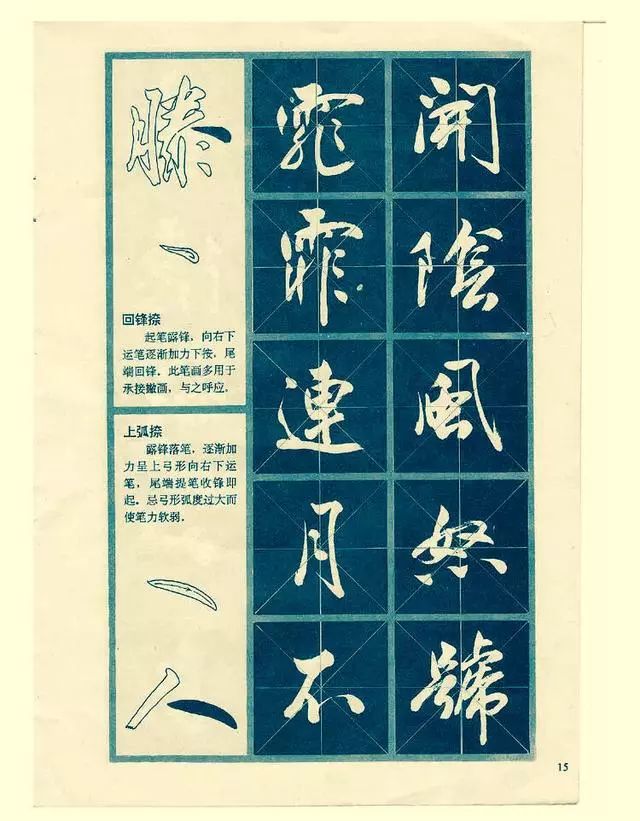 滕
回锋捺
起笔露锋，向右下
运笔逐渐加力下按，尾
端回锋。此笔画多用于
承接撇画，与之呼应。
上弧捺
露锋落笔，逐渐加
力呈上弓形向右下运
笔，尾端提笔收锋即
起。忌弓形弧度过大而
使笔力软弱。
人
霏霏連月不
開陰風怒號
15